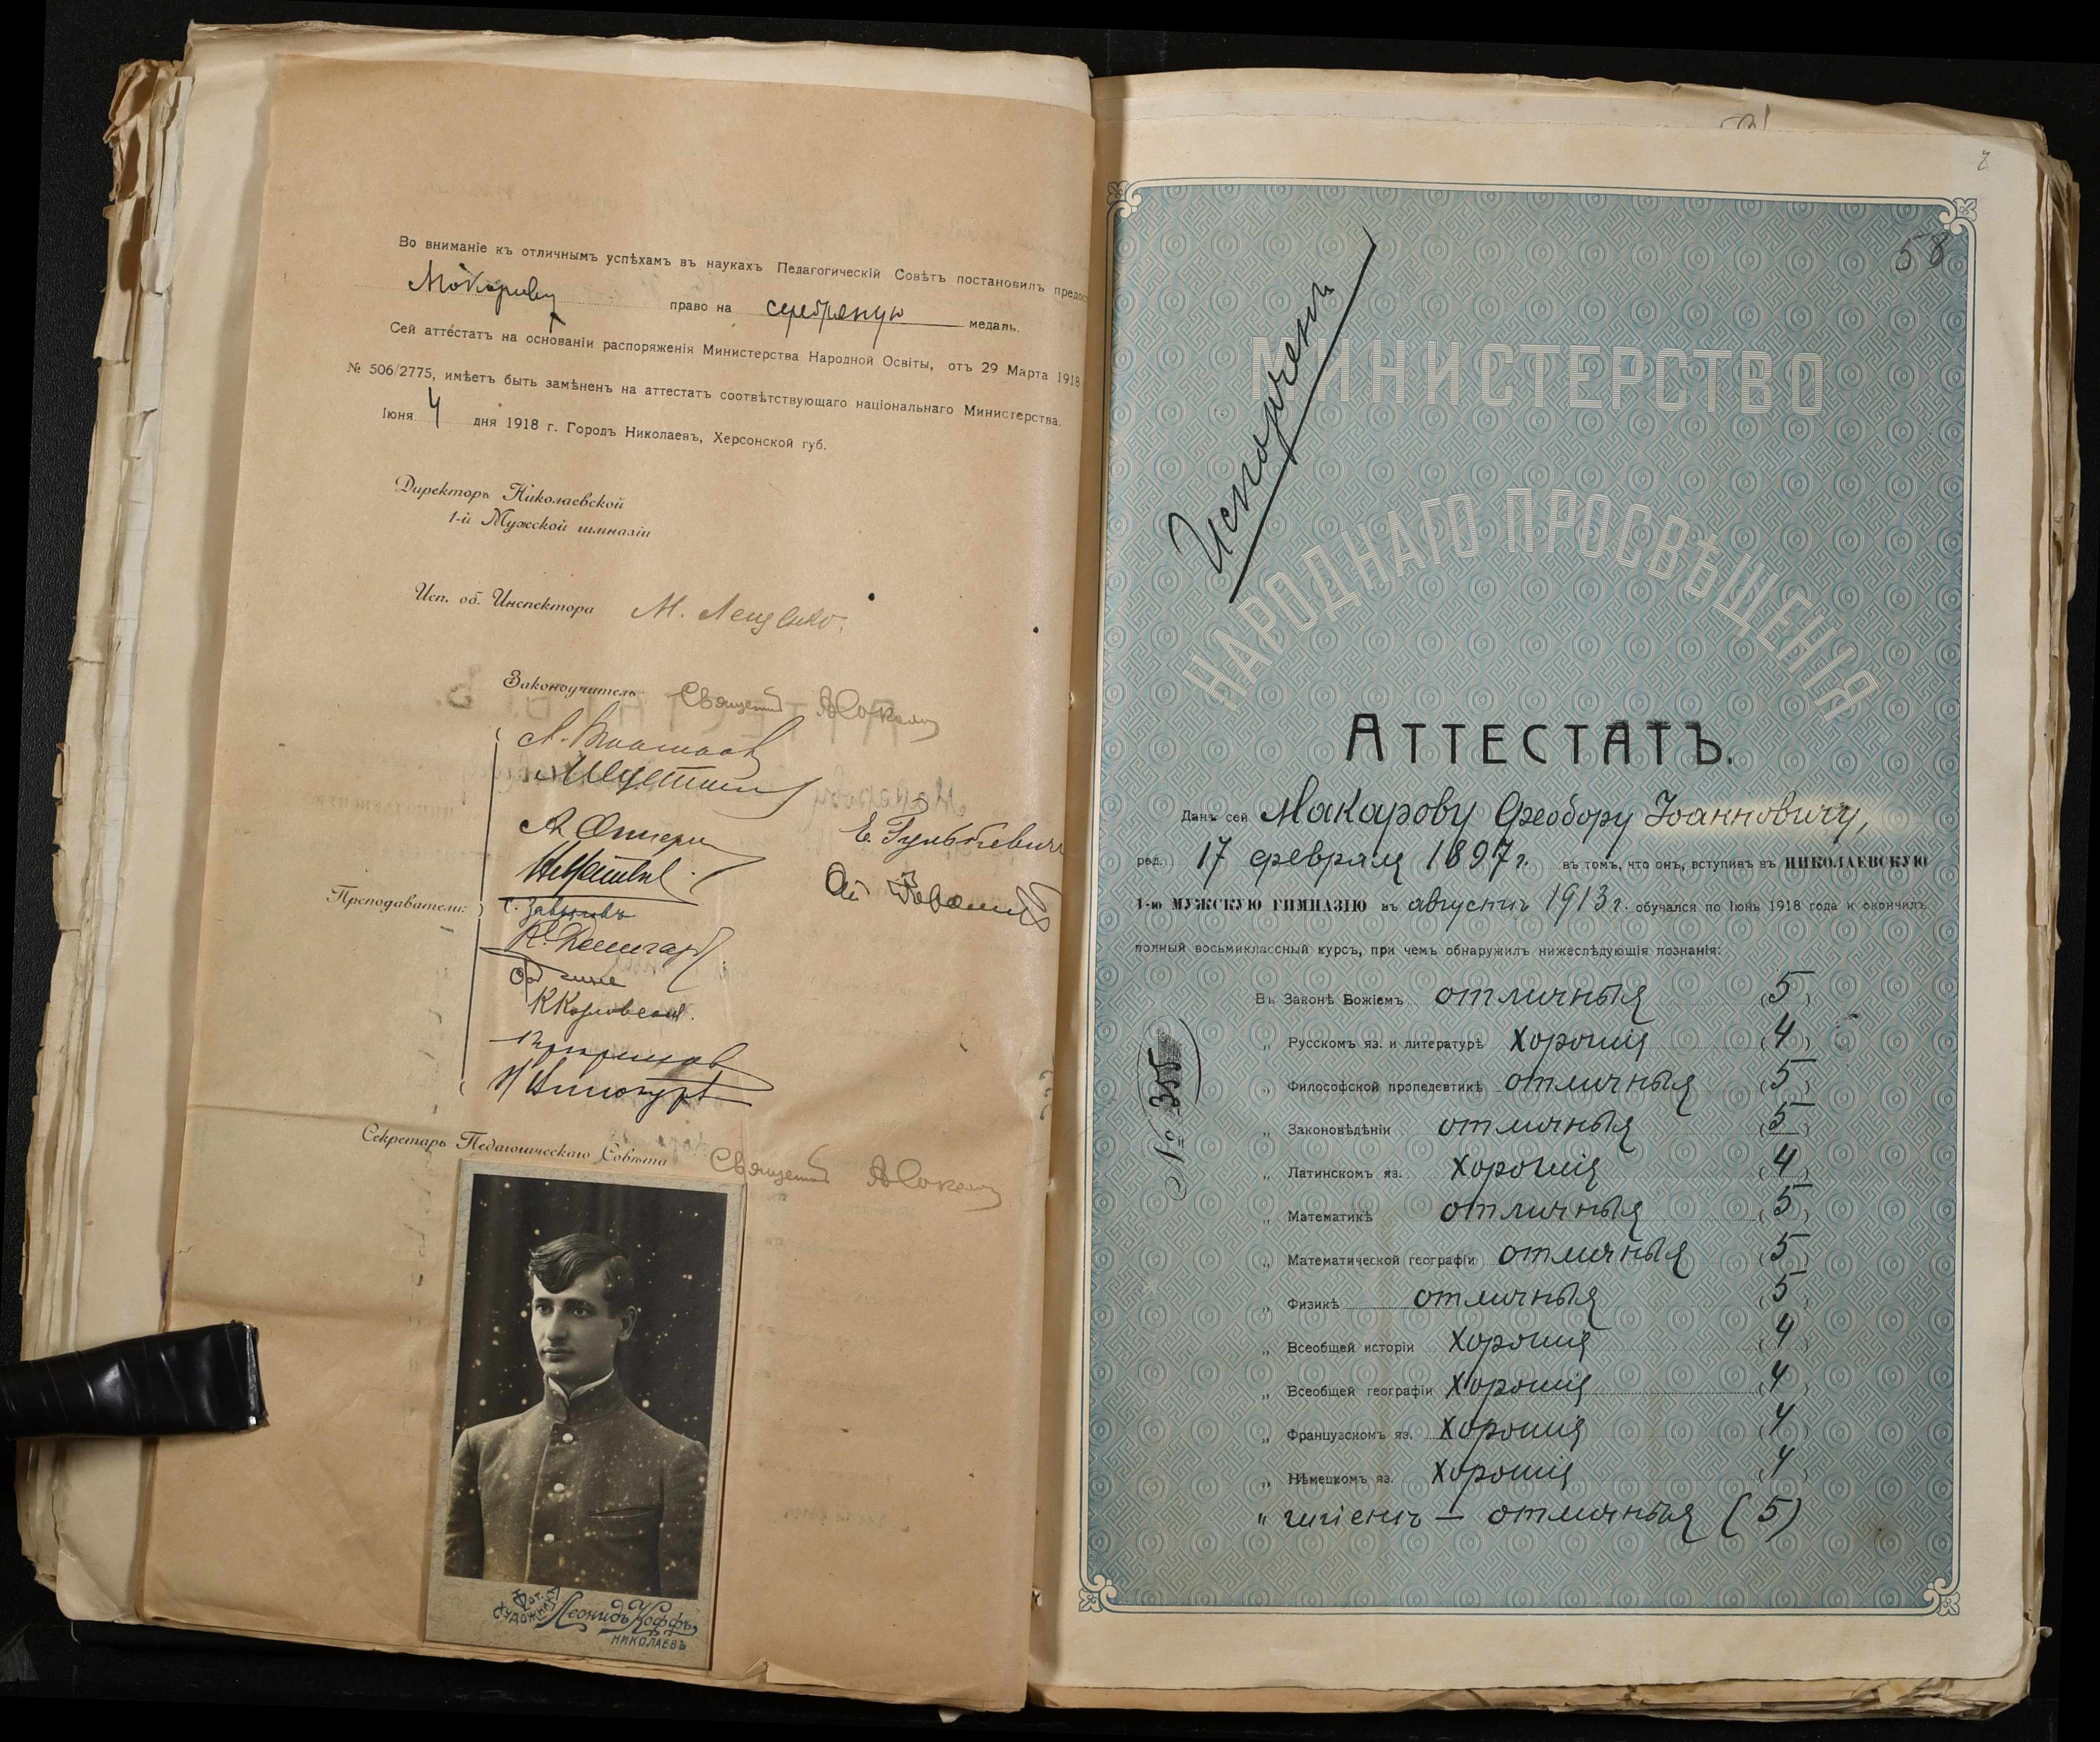 Во вниманіе къ отличнымъ успѣхамъ въ наукахъ Педагогическій Совѣтъ постановилъ предос
Макарову право на серебряную медаль.
Сей аттестатъ на основаніи распоряженія Министерства Народной Освіты, отъ 29 Марта 1918
№ 506/2775, имѣетъ быть замѣненъ на аттестатъ соотвѣтствующаго національнаго Министерства.
Іюня 4 дня 1918 г. Городъ Николаевъ, Херсонской губ.
Директоръ Николаевской
1-й Мужской гимназіи
Исп. об. Инспектора М. Лещенко.
Законоучитель: Священник А Соколов
Е. Гульбевич
Преподаватели:
Секретарь Педагогическаго Совѣта Священник А Соколов
Фот. Художника
Леонидъ Коффъ
НИКОЛАЕВЪ
8
58
Испорченъ
МИНИСТЕРСТВО
НАРОДНАГО ПРОСВѢЩЕНІЯ
АТТЕСТАТЪ.
Данъ сей Макарову Феодору Іоанновичу,
род. 17 февраля 1897 г. въ томъ, что онъ, вступивъ въ НИКОЛАЕВСКУЮ
1-ю МУЖСКУЮ ГИМНАЗІЮ въ августѣ 1913 г. обучался по Іюнь 1918 года и окончилъ
полный восьмиклассный курсъ, при чемъ обнаружилъ нижеслѣдующія познанія:
Въ Законѣ Божіемъ отличныя (5)
„ Русскомъ яз. и литературѣ хорошія (4)
„ Философской пропедевтикѣ отличныя (5)
„ Законовѣдѣніи отличныя (5)
„ Латинскомъ яз. хорошія (4)
„ Математикѣ отличныя (5)
„ Математической географіи отличныя (5)
„ Физикѣ отличныя (5)
„ Всеобщей исторіи хорошія (4)
„ Всеобщей географіи хорошія (4)
„ Французскомъ яз. хорошія (4)
„ Нѣмецкомъ яз. хорошія (4)
„ гигіенѣ — отличныя (5)
№ 355